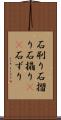 石刷り石摺
り石搨り
石ずり